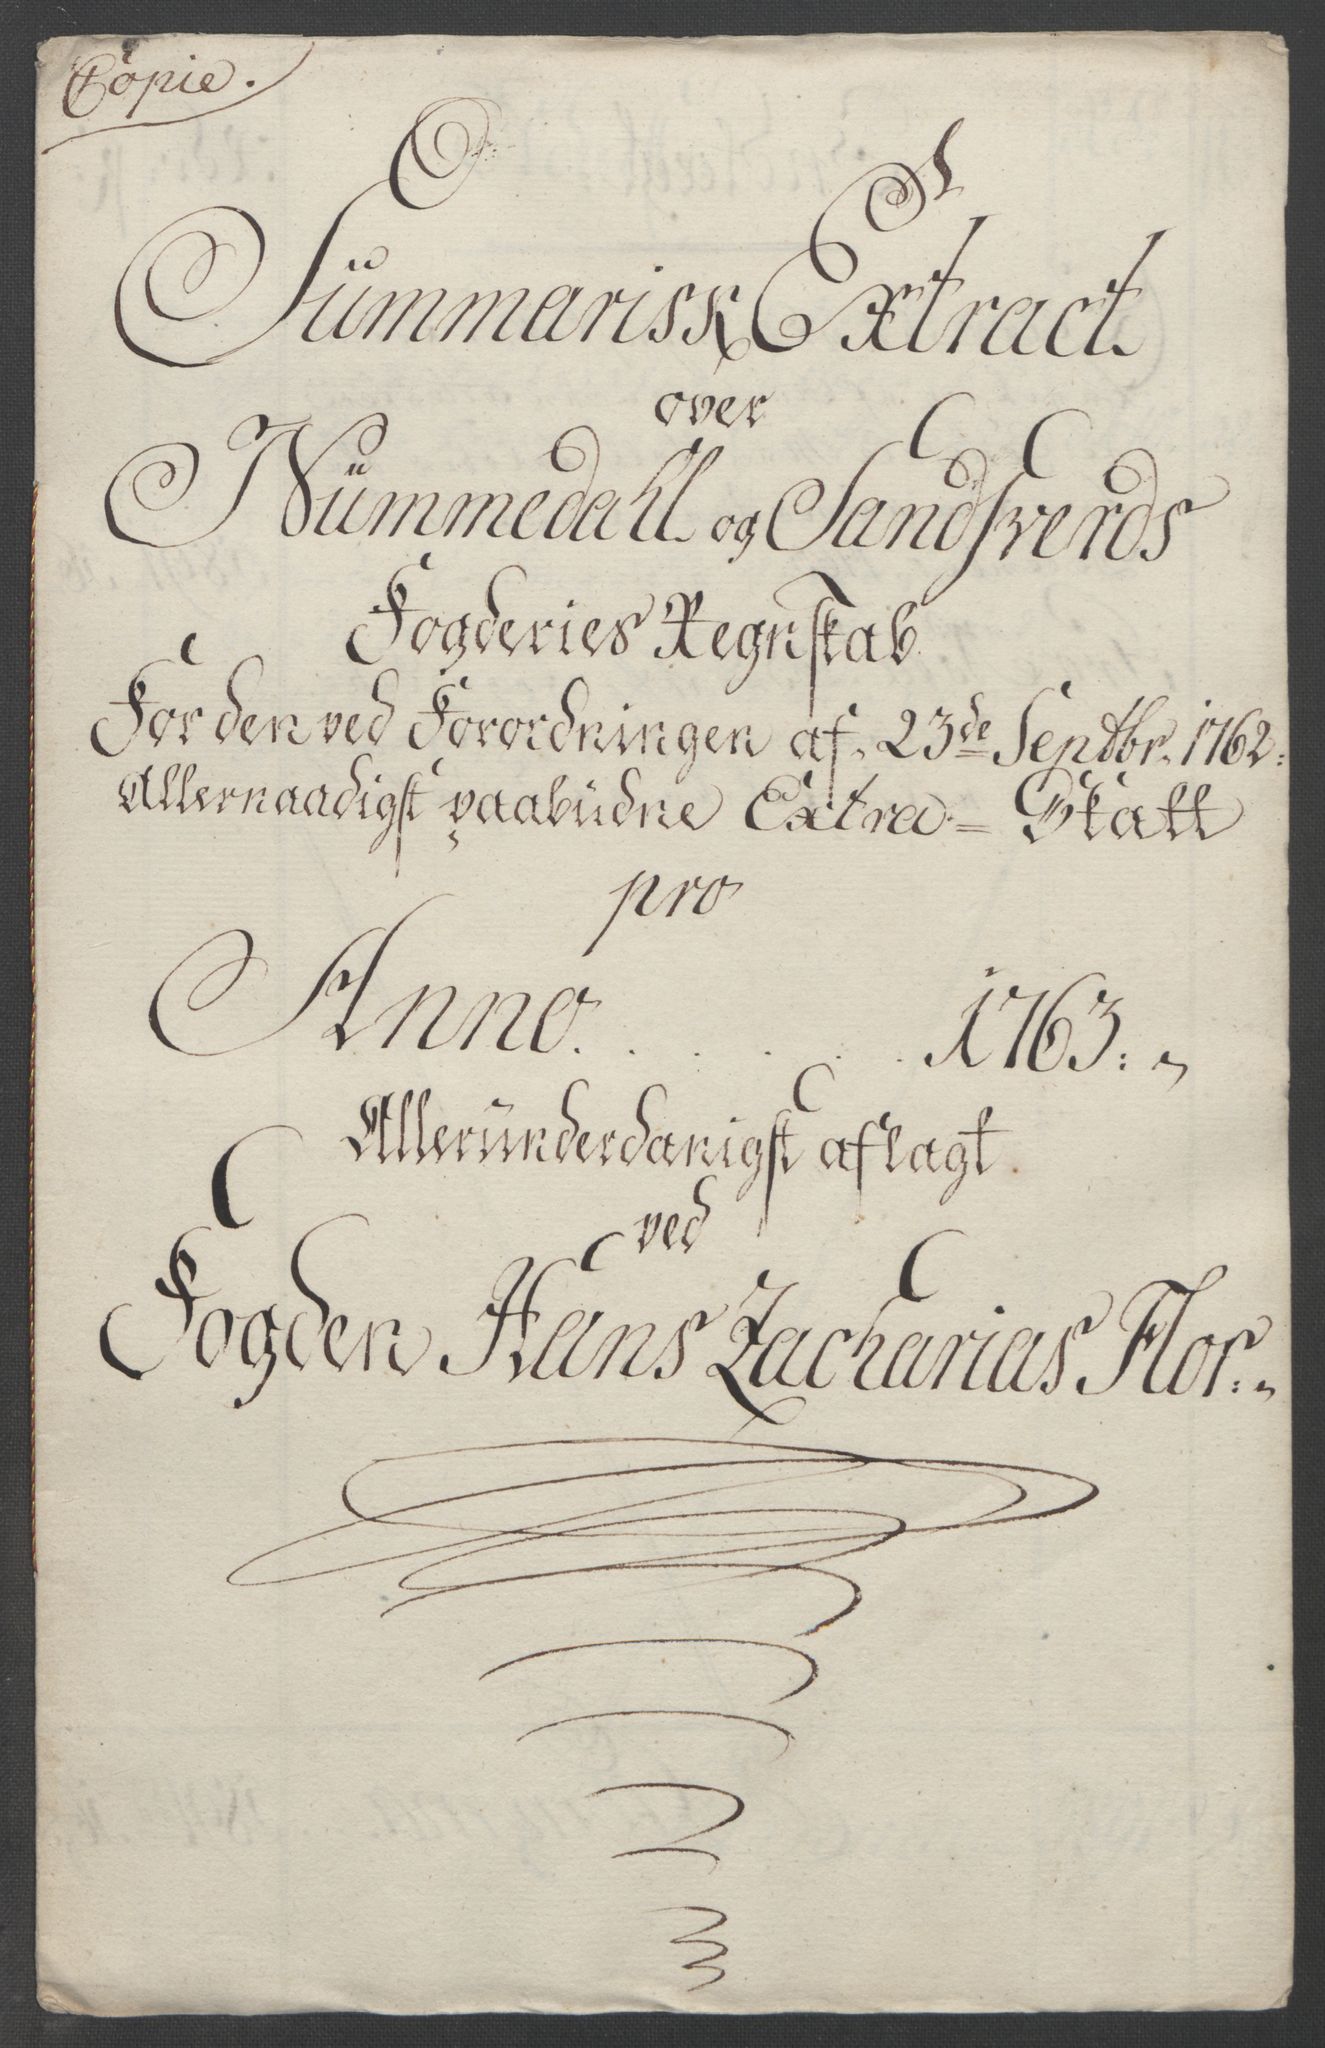 Copie.
Summarisk Extract
over
Nummedahl og Sandsverds
Fogderies Regnskab
For den ved Forordningen af 23de Septbr. 1762:
Allernaadigst paabudne Extra-Skatt
pro
Anno . . . . . . 1763:
Allerunderdanigst aflagt
ved
Fogden Hans Zacharias Flor: